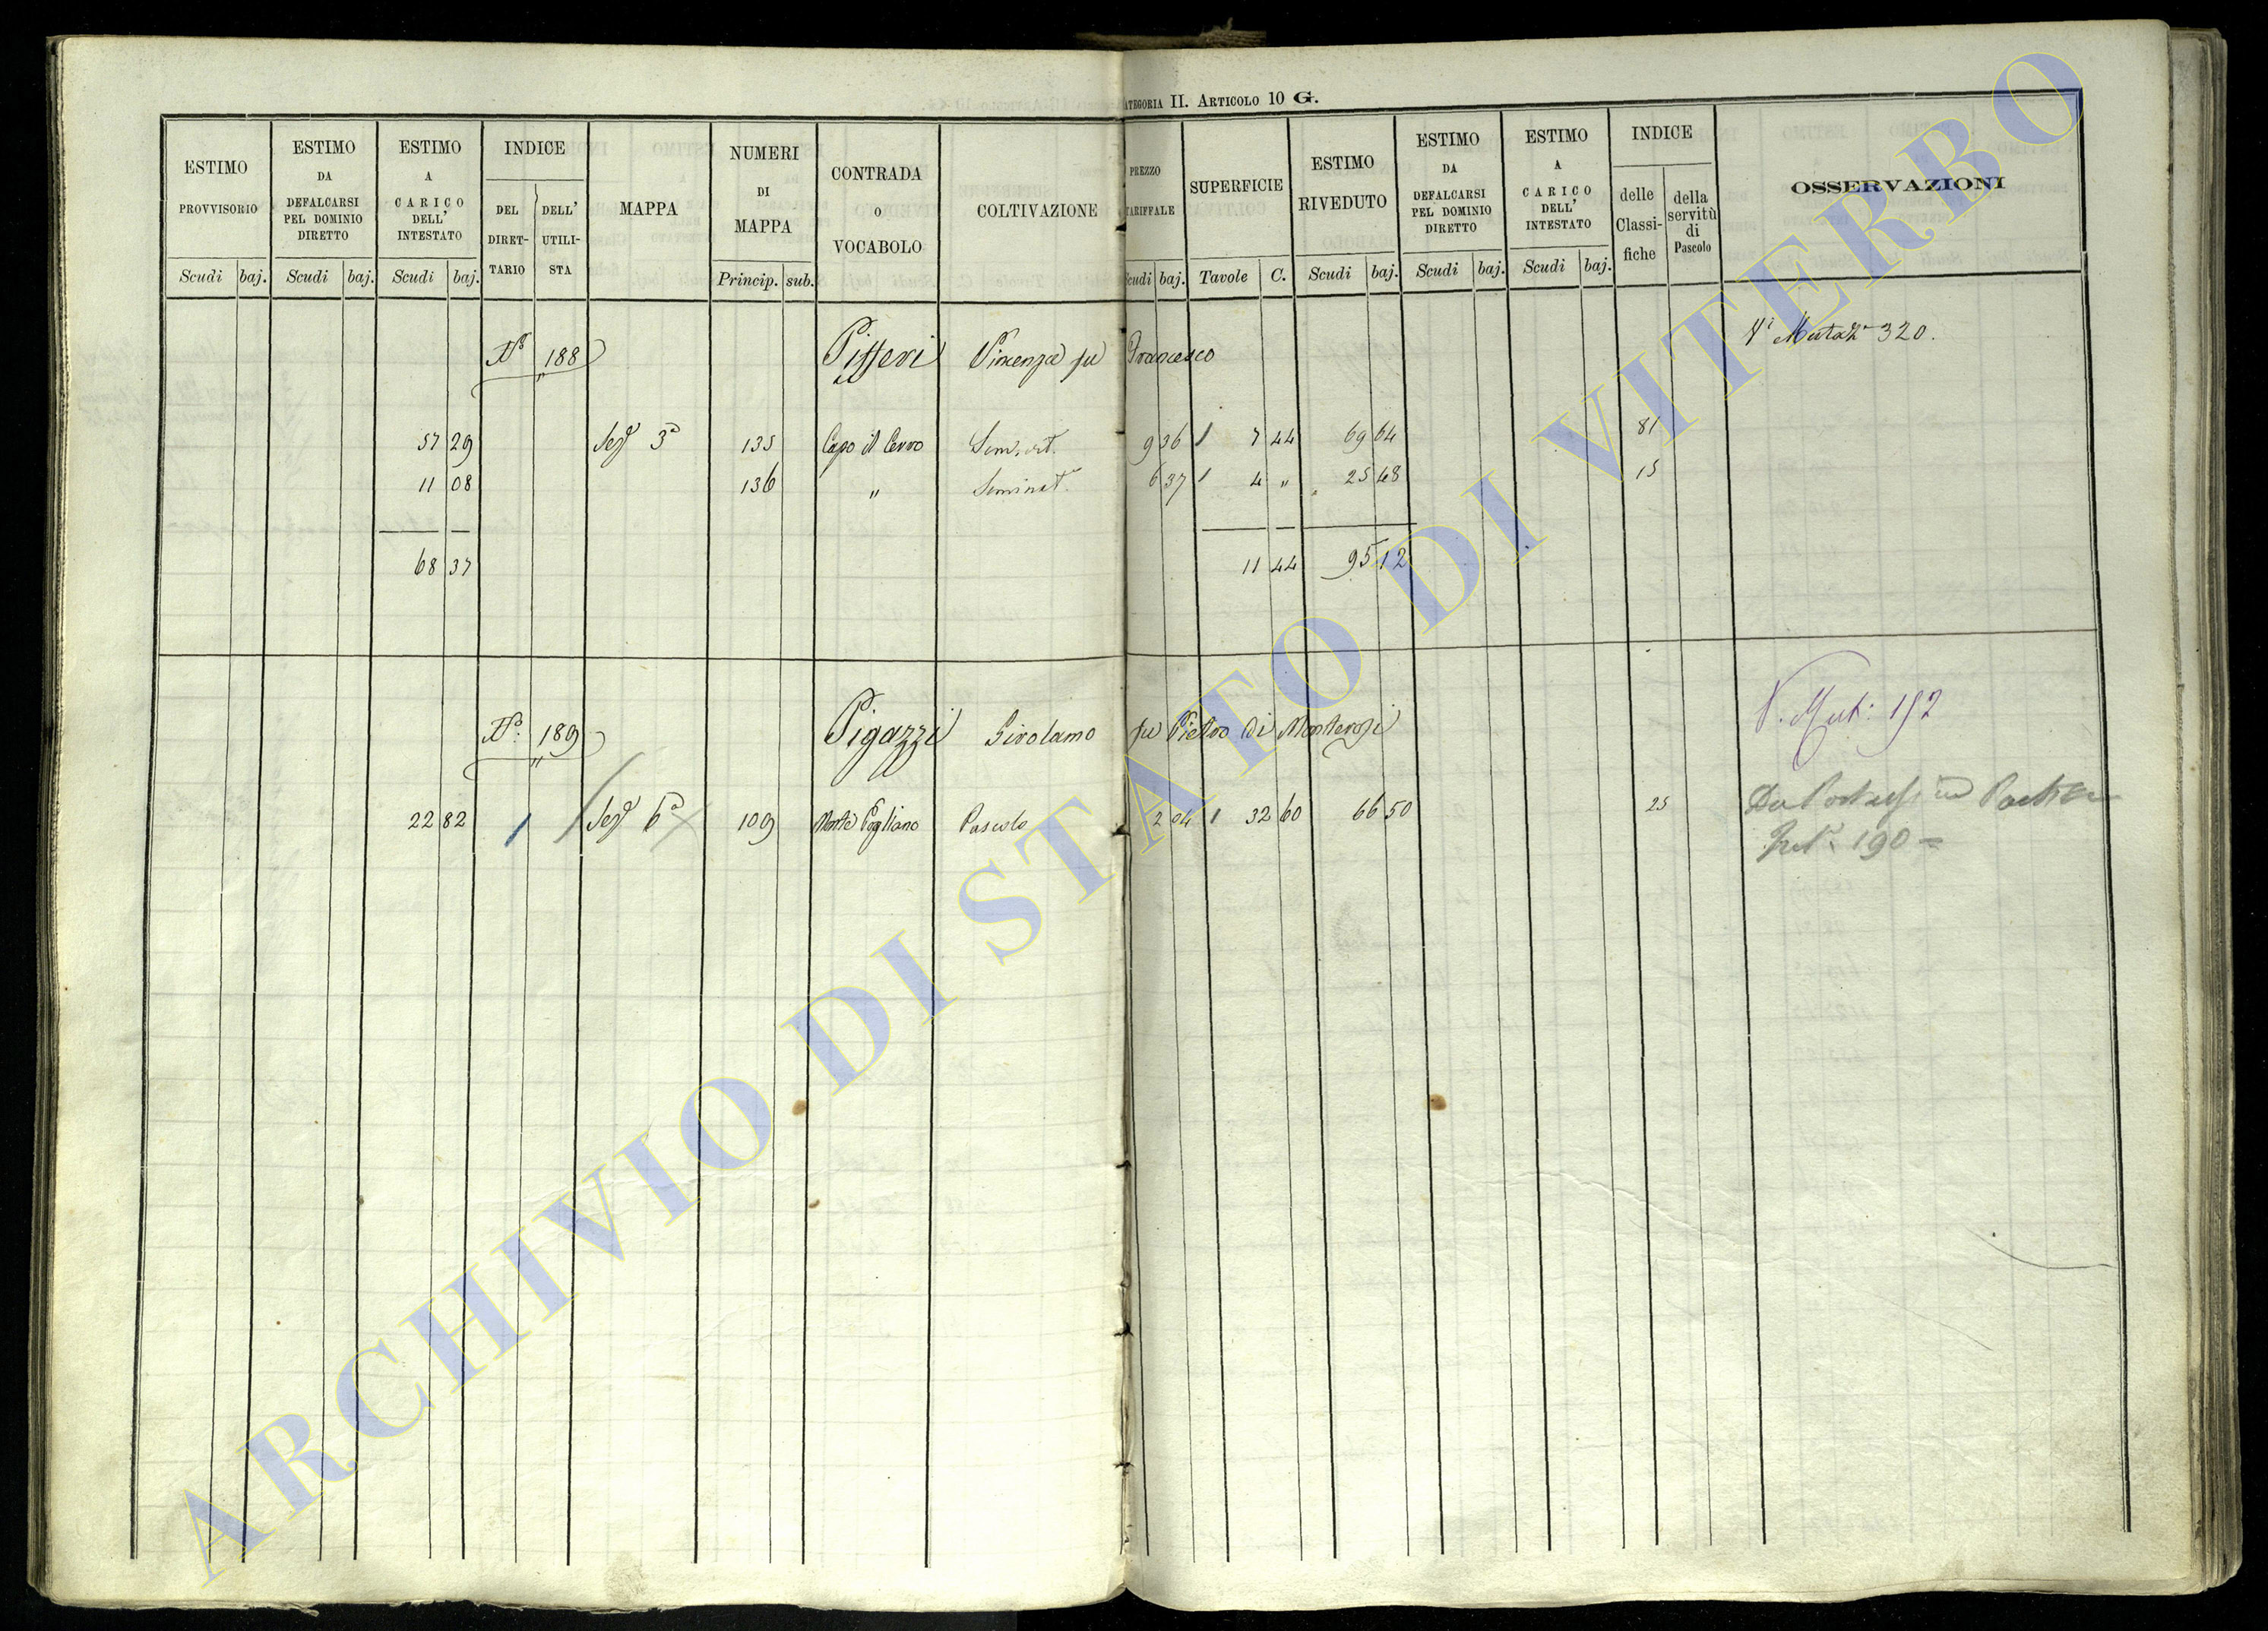 ATEGORIA II. ARTICOLO 10 G.
ESTIMO PROVVISORIO
ESTIMO DA DEFALCARSI PEL DOMINIO DIRETTO
ESTIMO A CARICO DELL' INTESTATO
INDICE
DEL DIRET-TARIO
DELL' UTILI-STA
MAPPA
NUMERI DI MAPPA
CONTRADA O VOCABOLO
COLTIVAZIONE
PREZZO TARIFFALE
SUPERFICIE
ESTIMO RIVEDUTO
ESTIMO DA DEFALCARSI PEL DOMINIO DIRETTO
ESTIMO A CARICO DELL' INTESTATO
INDICE
delle Classi-fiche
della servitù di Pascolo
OSSERVAZIONI
Scudi baj. Scudi baj. Scudi baj. Princip. sub. cudi baj. Tavole C. Scudi baj. Scudi baj. Scudi baj.
N° 188 Pifferi Vincenza fu Francesco 320.
57 29 3ª 135 Capo il Cerro 9 36 7 44 69 64 81
11 08 136 " Seminat. 6 37 4 " 25 48 15
68 37 11 44 95 12
N°: 189 Pigazzi Girolamo fu Pietro di Monterosi V. Mut: 192
22 82 1 6ª 109 Monte Fogliano Pascolo 2 04 32 60 66 50 25
190 =
ARCHIVIO DI STATO DI VITERBO